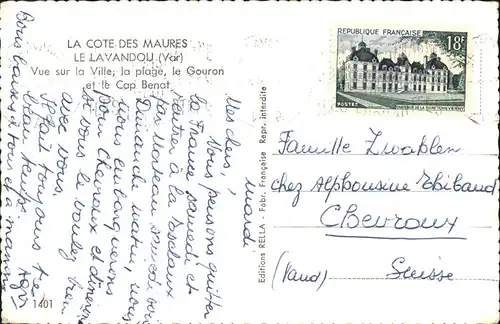 LA COTE DES MAURES
LE LAVANDOU (Var)
Vue sur la Ville, la plage, le Gouron
et le Cap Benat
REPUBLIQUE FRANÇAISE
18F
POSTES
Editions RELLA - Fabr. Française Repr. interdite
mardi
Mes chers,
Nous pensons quitter
la France samedi et
rentrer à la
Dimanche matin, nous
nous embarquerons
pour Chevroux et dînerons
si vous le voulez bien
avec vous.
fait toujours très
beau temps.
Bons baisers à tous et à maman
Famille Zwahlen
chez Alphonsine Thibaud
Chevroux
(Vaud) Suisse
1401